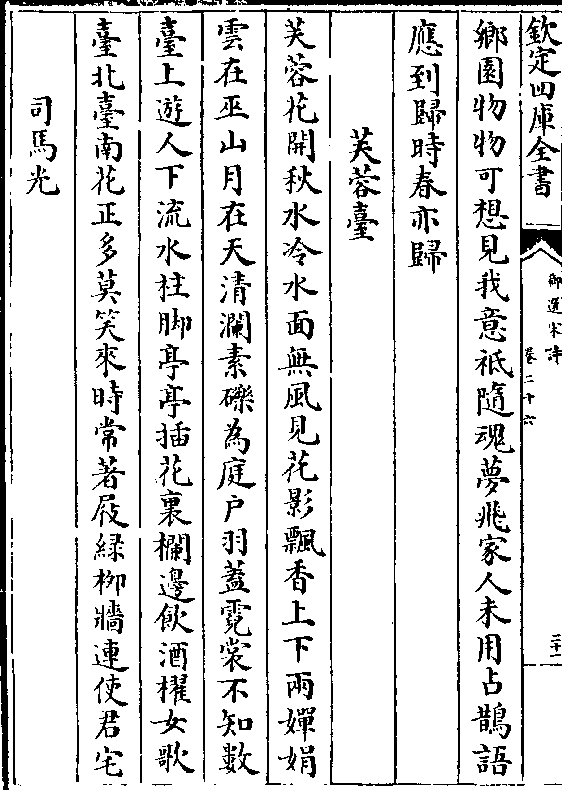 欽定四庫全書
御選宋詩
卷二十六
三十一
鄉園物物可想見我意祗隨魂夢飛家人未用占鵲語
應到歸時春亦歸
芙蓉臺
芙蓉花開秋水冷水面無風見花影飄香上下兩嬋娟
雲在巫山月在天清瀾素礫為庭户羽蓋霓裳不知數
臺上遊人下流水柱脚亭亭插花裏欄邊飲酒櫂女歌
臺北臺南花正多莫笑來時常著屐緑栁牆連使君宅
司馬光